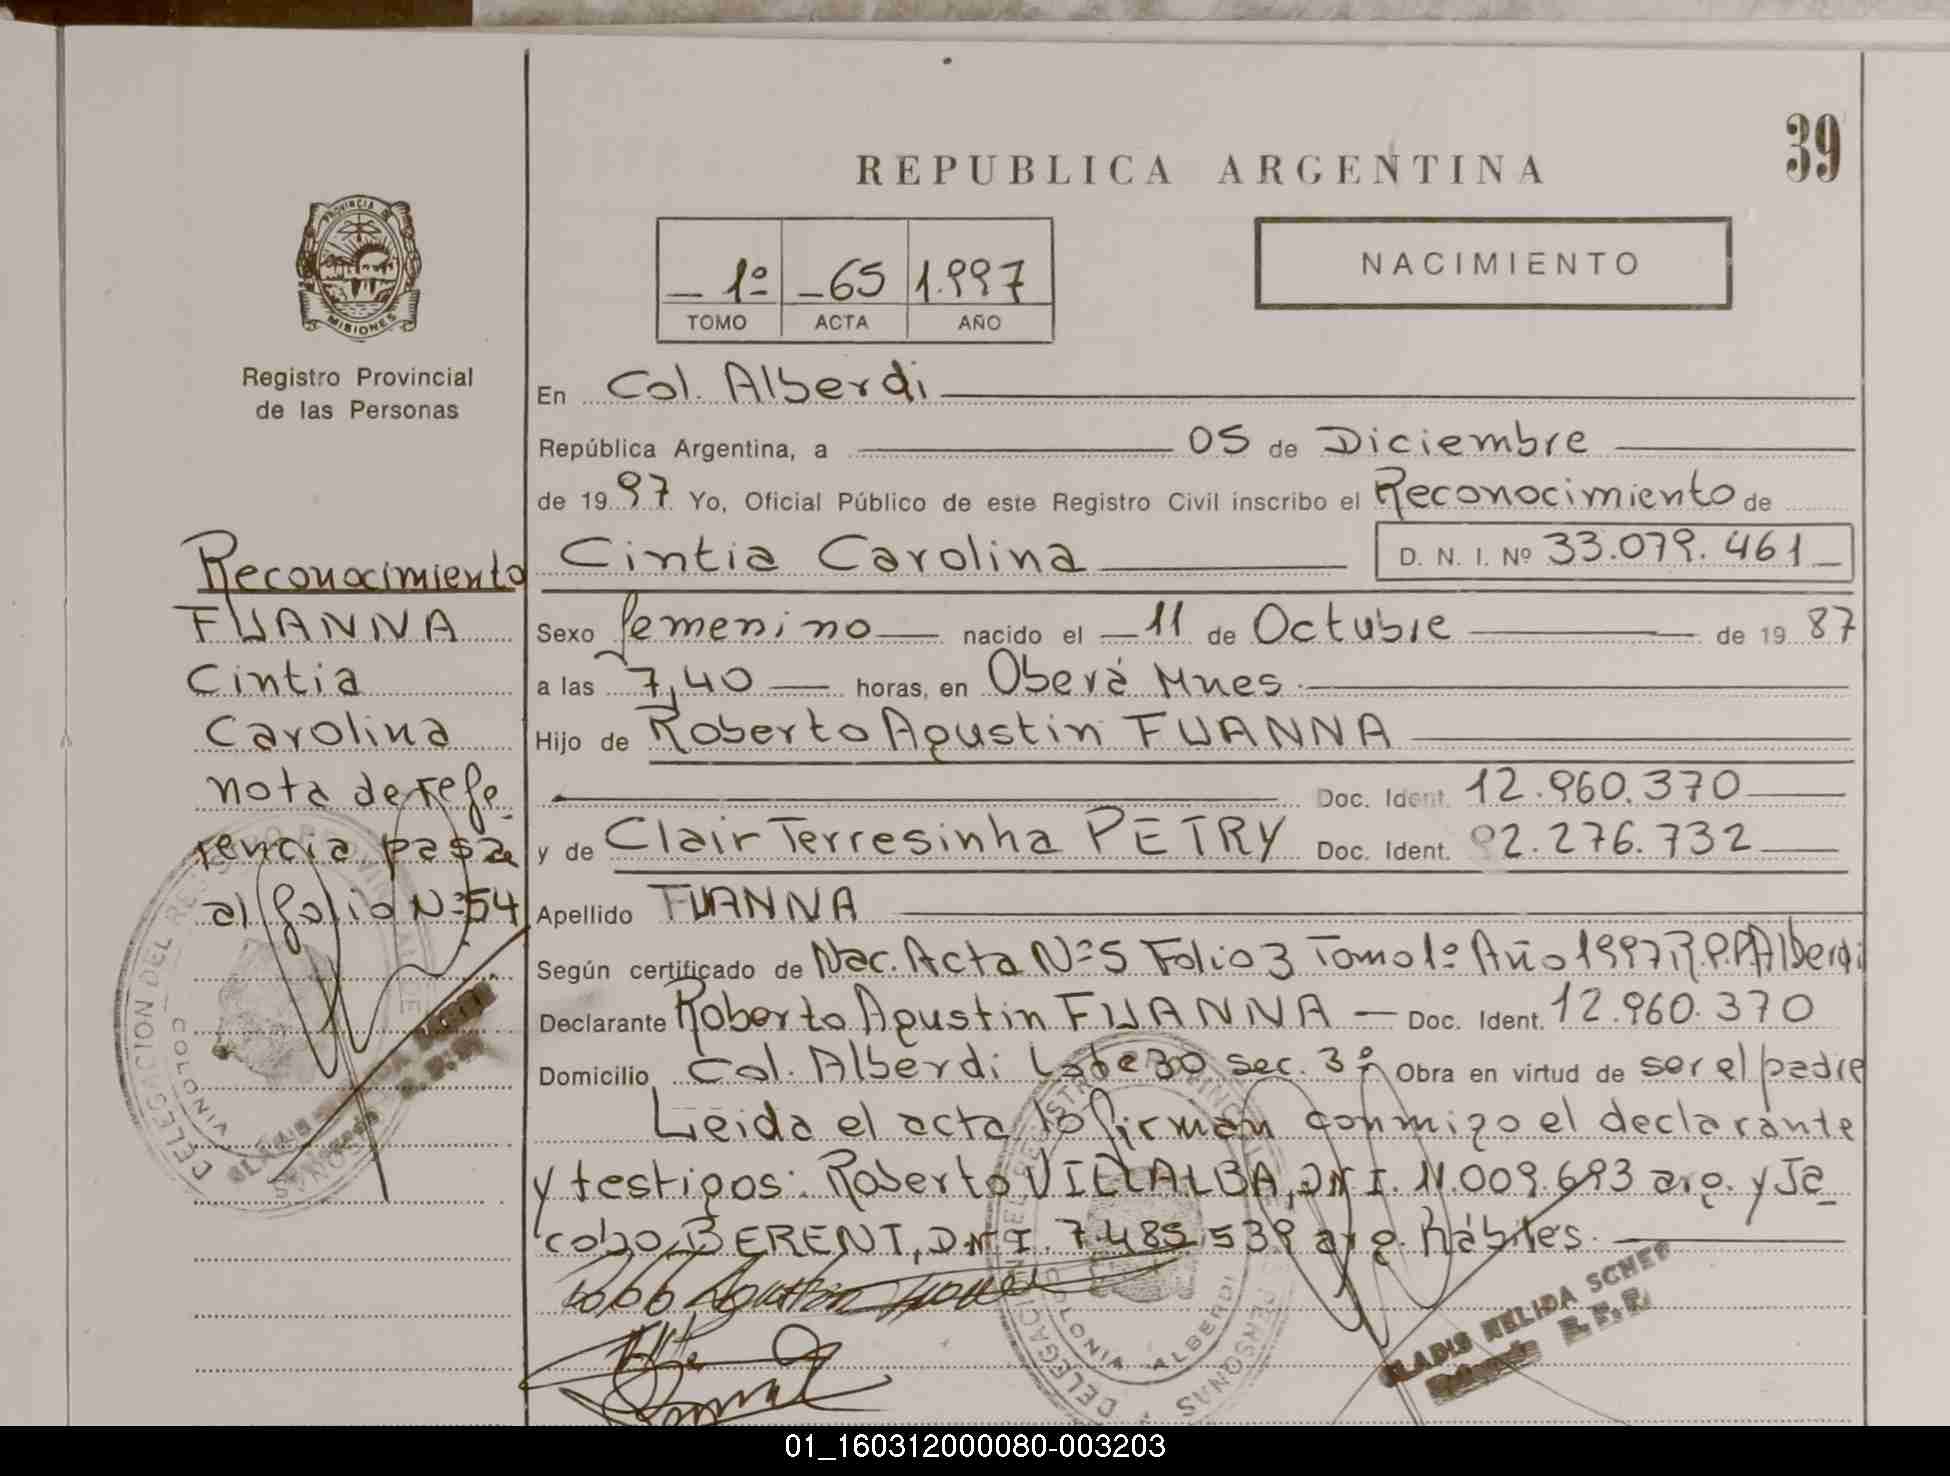 39
REPUBLICA ARGENTINA
PROVINCIA DE
MISIONES
Registro Provincial
de las Personas
1º 65 1.997
TOMO ACTA AÑO
NACIMIENTO
En Col. Alberdi
República Argentina, a 05 de Diciembre
de 1997 Yo, Oficial Público de este Registro Civil inscribo el Reconocimiento de
Cintia Carolina D. N. I. Nº 33.079.461
Sexo femenino nacido el 11 de Octubre de 1987
a las 7,40 horas, en Oberá Mnes.
Hijo de Roberto Agustin FUANNA
Doc. Ident. 12.960.370
y de Clair Terresinha PETRY Doc. Ident. 92.276.732
Apellido FUANNA
Según certificado de Nac. Acta Nº 5 Folio 3 Tomo 1º Año 1997 R.P.P. Alberdi
Declarante Roberto Agustin FUANNA Doc. Ident. 12.960.370
Domicilio Col. Alberdi Lote 30 sec. 3ª Obra en virtud de ser el padre
Leida el acta lo firman conmigo el declarante
y testigos: Roberto VILLALBA, DNI. 11.009.693 arg. y Ja
cobo BERENT, DNI. 7.485.539 arg. hábiles.
Reconocimiento
FUANNA
Cintia
Carolina
nota de refe-
rencia pasa
al folio Nº 54
DELEGACION DEL REGISTRO PROVINCIAL DE
PERSONAS
COLONIA
DELEGACION DEL REGISTRO PROVINCIAL DE
PERSONAS
COLONIA ALBERDI
GLADIS NELIDA SCHEF
01_160312000080-003203